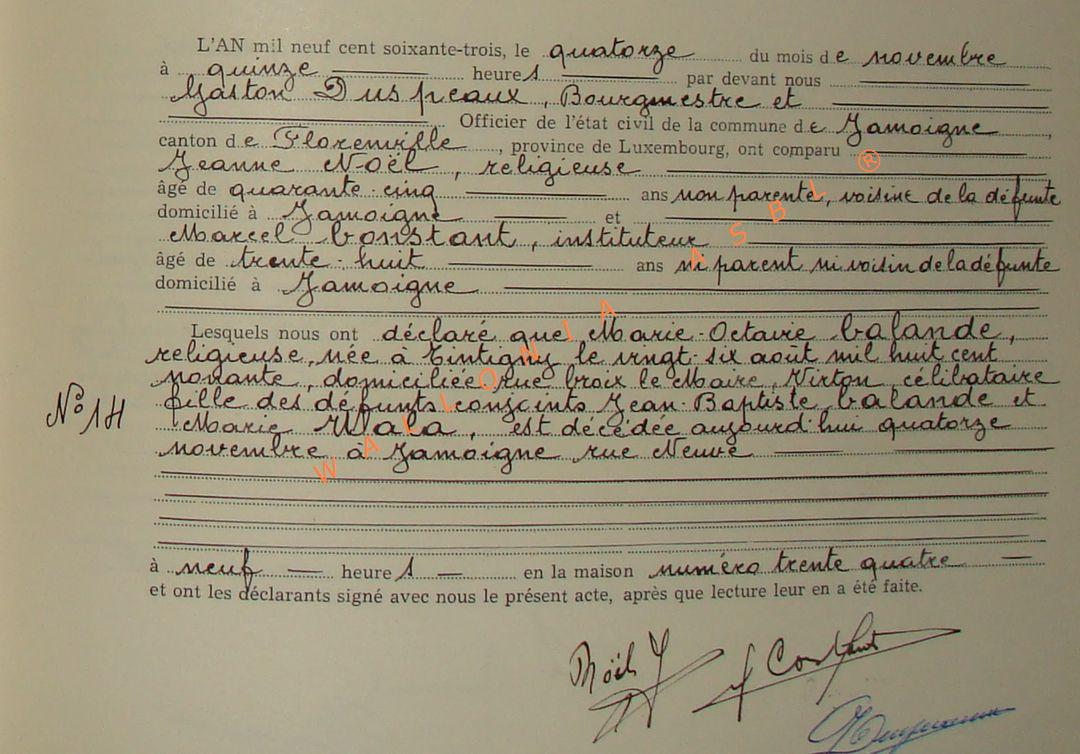 L'AN mil neuf cent soixante-trois, le quatorze du mois de novembre
à quinze heures par devant nous
Gaston Duspeaux, Bourgmestre et
Officier de l'état civil de la commune de Jamoigne,
canton de Florenville, province de Luxembourg, ont comparu
Jeanne Noël, religieuse
âgé de quarante-cinq ans non parente, voisine de la défunte
domicilié à Jamoigne et
Marcel Constant, instituteur
âgé de trente-huit ans ni parent ni voisin de la défunte
domicilié à Jamoigne
Lesquels nous ont déclaré que Marie-Octavie Calande,
religieuse, née à Tintigny le vingt-six août mil huit cent
nonante, domiciliée rue Croix le Maire, Virton, célibataire
N° 14 fille des défunts conjoints Jean-Baptiste Calande et
Marie Wala, est décédée aujourd'hui quatorze
novembre à Jamoigne rue Neuve
à neuf heures en la maison numéro trente quatre
et ont les déclarants signé avec nous le présent acte, après que lecture leur en a été faite.
Noël J Constant
WALLONIA ASBL ®